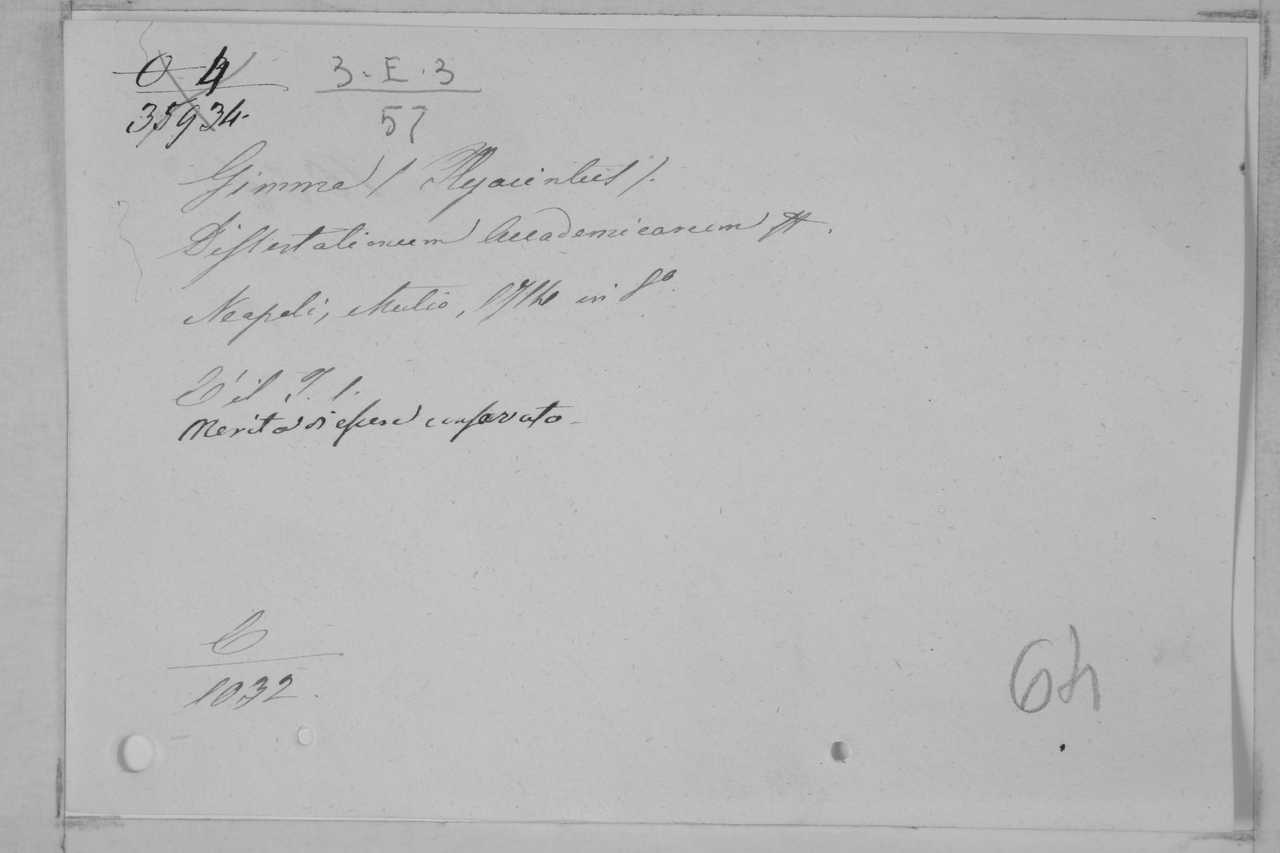 O 4
35934.
3. E. 3
57
Gimma (Hyacinthus).
Dissertationum Accademicarum
Neapoli, Mutio, 1714 in 8º.
È il T. 1.
Merita di essere conservato.
C
1032.
64